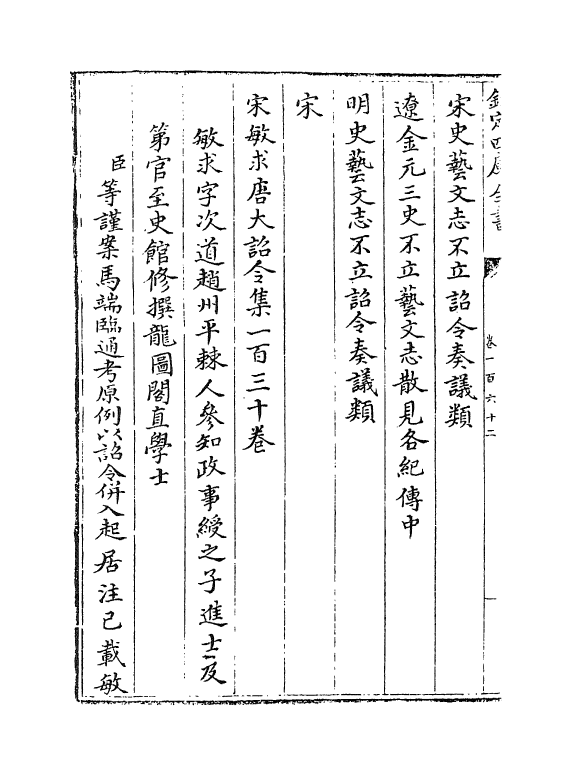 欽定四庫全書
卷一百六十二
宋史藝文志不立詔令奏議類
遼金元三史不立藝文志散見各紀傳中
明史藝文志不立詔令奏議類
宋
宋敏求唐大詔令集一百三十卷
敏求字次道趙州平棘人參知政事綬之子進士及
第官至史館修撰龍圖閣直學士
臣等謹案馬端臨通考原例以詔令併入起居注已載敏